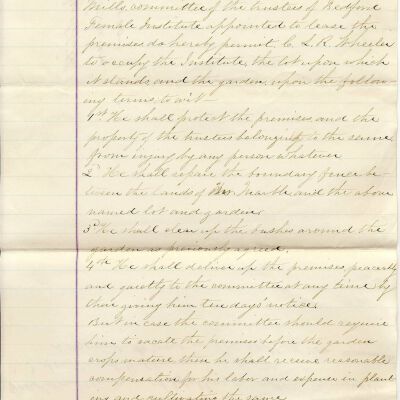 Mills, committee of the trustees of Bedford
Female Institute appointed to lease the
premises do hereby permit, C. L. R. Wheeler
to occupy the Institute, the lot upon which
it stands and the garden, upon the follow-
ing terms to wit—
1st He shall protect the premises and the
property of the trustees belonging to the same
from injury by any person whatever
2d He shall repair the boundary fence be-
tween the lands of Marble and the above
named lot and garden.
3d He shall clean up the bushes around the
garden as previously agreed.
4th He shall deliver up the premises peaceably
and quietly to the committee at any time by
their giving him ten days' notice.
But in case the committee should require
him to vacate the premises before the garden
crops mature then he shall receive reasonable
compensation for his labor and expense in plant-
ing and cultivating the same